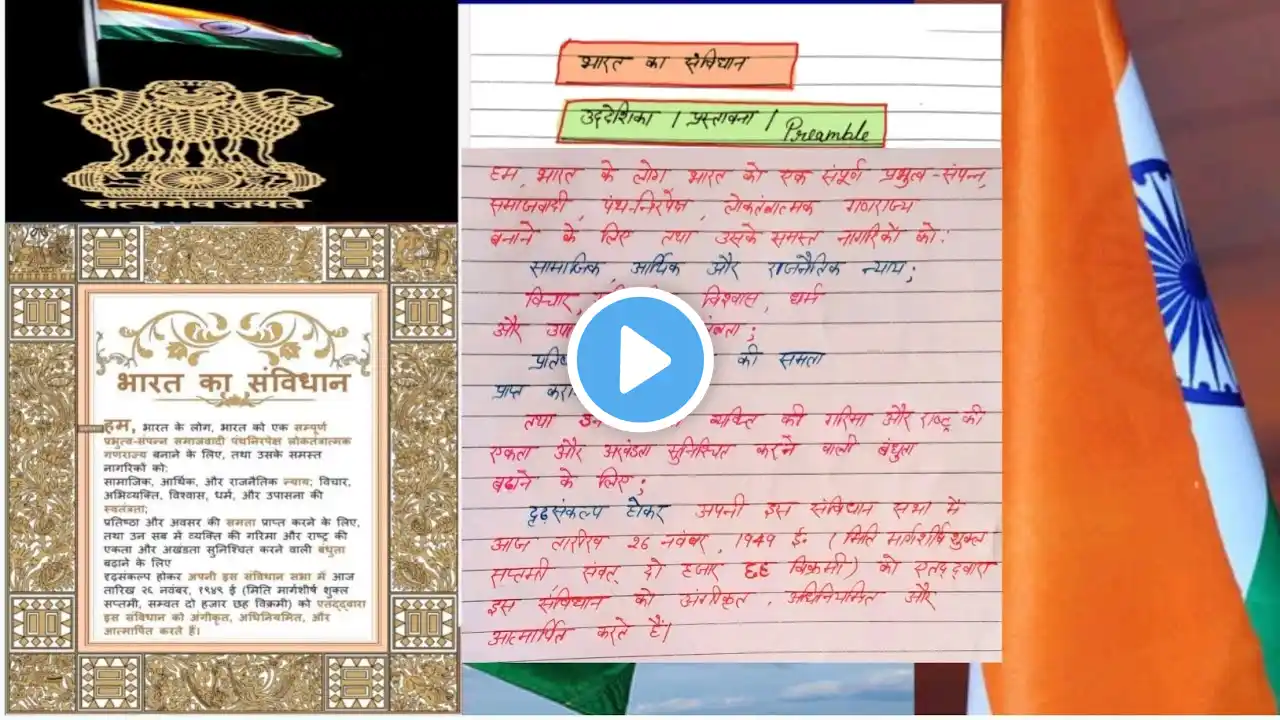 सत्यमेव जयते
भारत का संविधान
हम, भारत के लोग, भारत को एक सम्पूर्ण
प्रभुत्व-संपन्न समाजवादी पंथनिरपेक्ष लोकतंत्रात्मक
गणराज्य बनाने के लिए, तथा उसके समस्त
नागरिकों को:
सामाजिक, आर्थिक, और राजनैतिक न्याय; विचार,
अभिव्यक्ति, विश्वास, धर्म, और उपासना की
स्वतंत्रता;
प्रतिष्ठा और अवसर की समता प्राप्त करने के लिए,
तथा उन सब मे व्यक्ति की गरिमा और राष्ट्र की
एकता और अखंडता सुनिश्चित करने वाली बंधुता
बढाने के लिए
दृढ़संकल्प होकर अपनी इस संविधान सभा में आज
तारिख २६ नवंबर, १९४९ ई (मिति मार्गशीर्ष शुक्ल
सप्तमी, सम्वत दो हजार छह विक्रमी) को एतद्द्वारा
इस संविधान को अंगीकृत, अधिनियमित, और
आत्मार्पित करते हैं।
भारत का संविधान
उद्देशिका । प्रस्तावना । Preamble
हम, भारत के लोग भारत को एक संपूर्ण प्रभुत्व-संपन्न,
समाजवादी, पंथनिरपेक्ष, लोकतंत्रात्मक गणराज्य
बनाने के लिए तथा उसके समस्त नागरिकों को:
सामाजिक, आर्थिक और राजनैतिक न्याय;
विचार, विश्वास, धर्म
और
की समता
प्राप्त
तथा व्यक्ति की गरिमा और राष्ट्र की
एकता और अखंडता सुनिश्चित करने वाली बंधुता
बढ़ाने के लिए;
दृढ़संकल्प होकर अपनी इस संविधान सभा में
आज तारीख 26 नवंबर, 1949 ई० (मिति मार्गशीर्ष शुक्ल
सप्तमी संवत् दो हजार छह विक्रमी) को एतद् द्वारा
इस संविधान को अंगीकृत, अधिनियमित और
आत्मार्पित करते हैं।